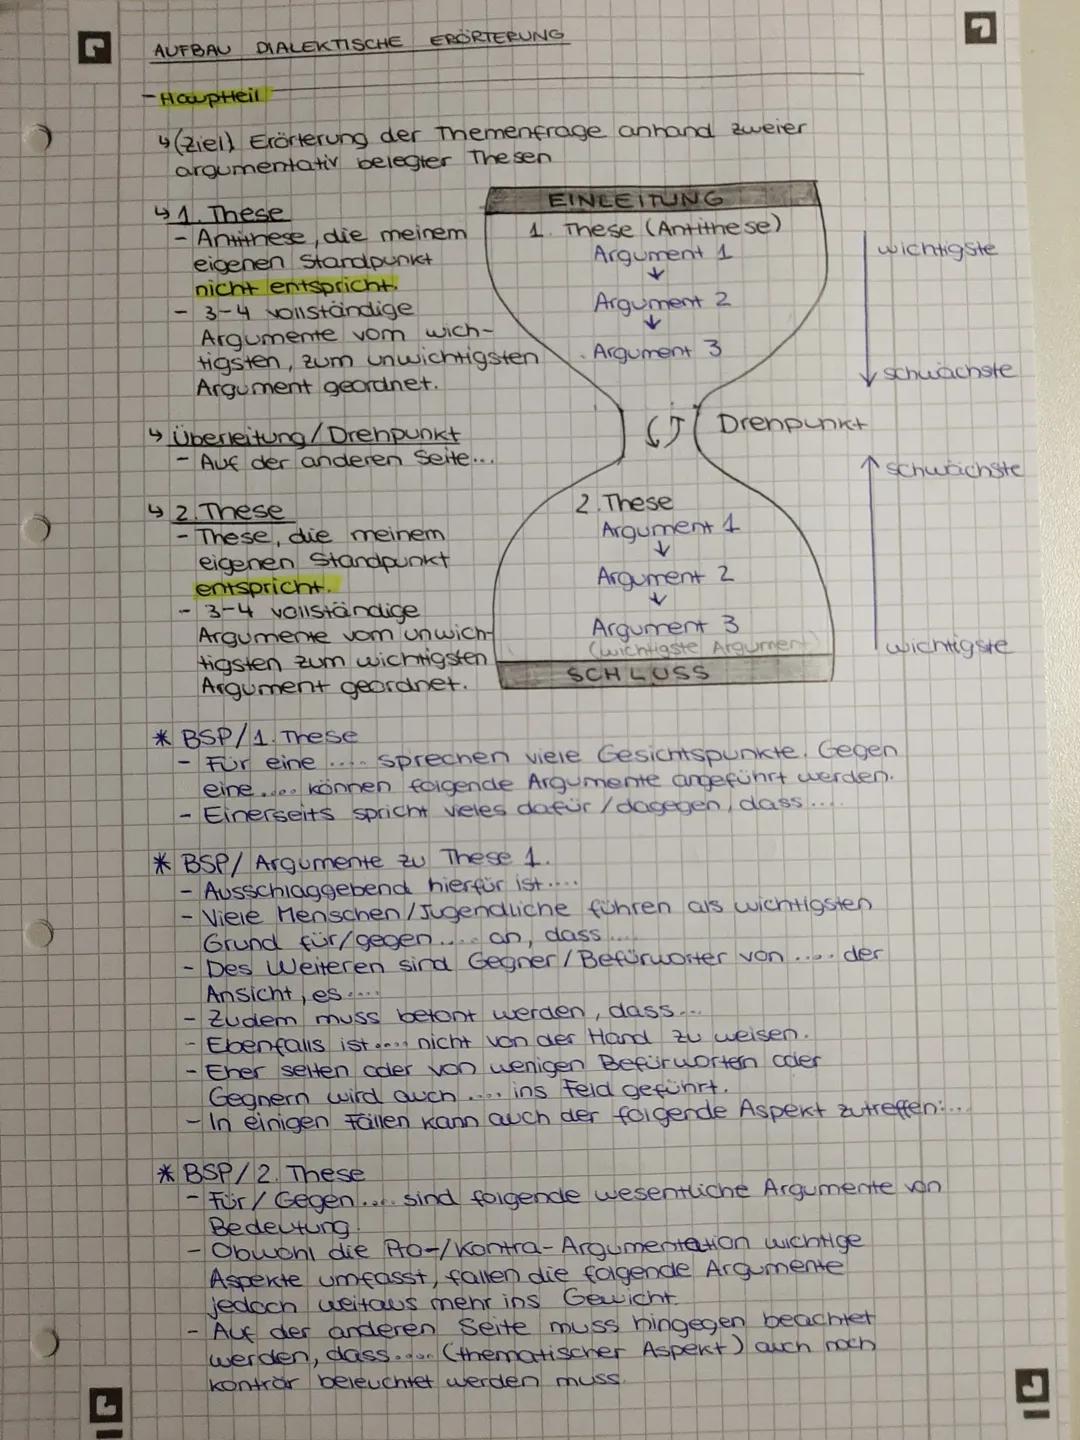 AUFBAU DIALEKTISCHE ERÖRTERUNG
- Hauptteil
↳ (Ziel) Erörterung der Themenfrage anhand zweier
argumentativ belegter Thesen
↳ 1. These
- Antithese, die meinem
eigenen Standpunkt
nicht entspricht.
- 3-4 vollständige
Argumente vom wich-
tigsten, zum unwichtigsten
Argument geordnet.
↳ Überleitung/Drehpunkt
- Auf der anderen Seite...
↳ 2. These
- These, die meinem
eigenen Standpunkt
entspricht.
- 3-4 vollständige
Argumente vom unwich-
tigsten zum wichtigsten
Argument geordnet.
EINLEITUNG
1. These (Antithese)
Argument 1
↓
Argument 2
↓
Argument 3
wichtigste
schwächste
Drehpunkt
schwächste
2. These
Argument 1
↓
Argument 2
↓
Argument 3
(wichtigste Argument)
wichtigste
SCHLUSS
* BSP/1. These
- Für eine .... sprechen viele Gesichtspunkte. Gegen
eine .... können folgende Argumente angeführt werden.
- Einerseits spricht vieles dafür/dagegen, dass....
* BSP/ Argumente zu These 1.
- Ausschlaggebend hierfür ist....
- Viele Menschen/Jugendliche führen als wichtigsten
Grund für/gegen.... an, dass....
- Des Weiteren sind Gegner/Befürworter von .... der
Ansicht, es....
- Zudem muss betont werden, dass...
- Ebenfalls ist.... nicht von der Hand zu weisen.
- Eher selten oder von wenigen Befürwortern oder
Gegnern wird auch .... ins Feld geführt.
- In einigen Fällen kann auch der folgende Aspekt zutreffen:...
* BSP/2. These
- Für/Gegen.... sind folgende wesentliche Argumente von
Bedeutung.
- Obwohl die Pro-/Kontra-Argumentation wichtige
Aspekte umfasst, fallen die folgende Argumente
jedoch weitaus mehr ins Gewicht.
- Auf der anderen Seite muss hingegen beachtet
werden, dass.... (thematischer Aspekt) auch noch
konträr beleuchtet werden muss.